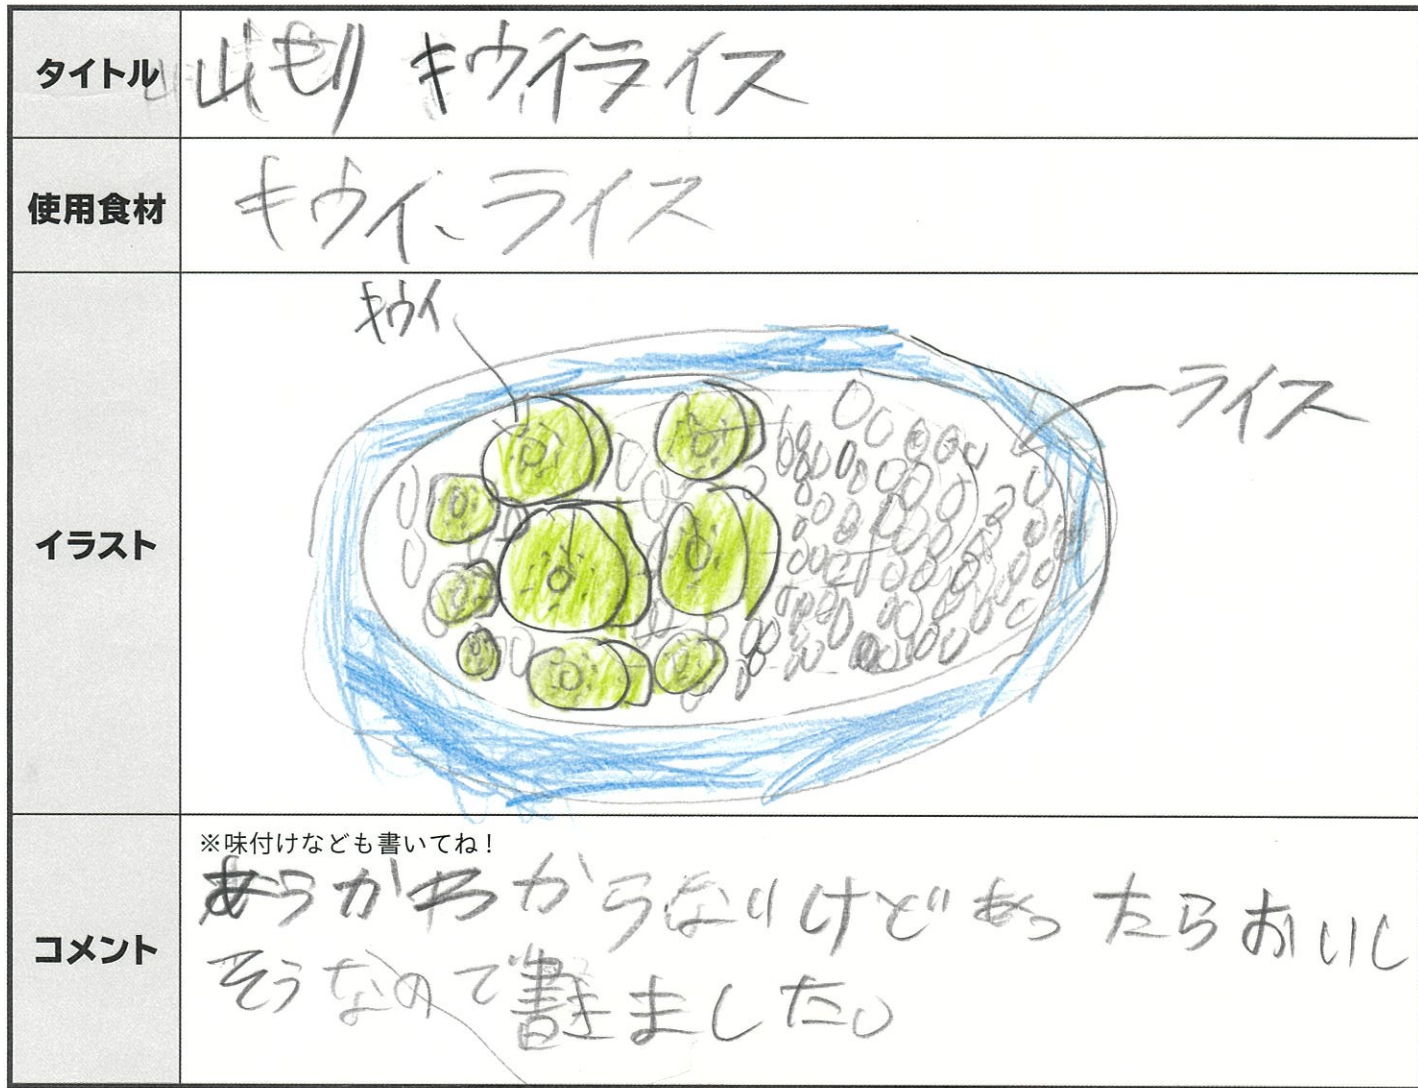 タイトル 山もり キウイライス
使用食材 キウイ、ライス
イラスト
キウイ
ライス
コメント
※味付けなども書いてね！
あうかわからないけどあったらおいし
そうなので書きました。